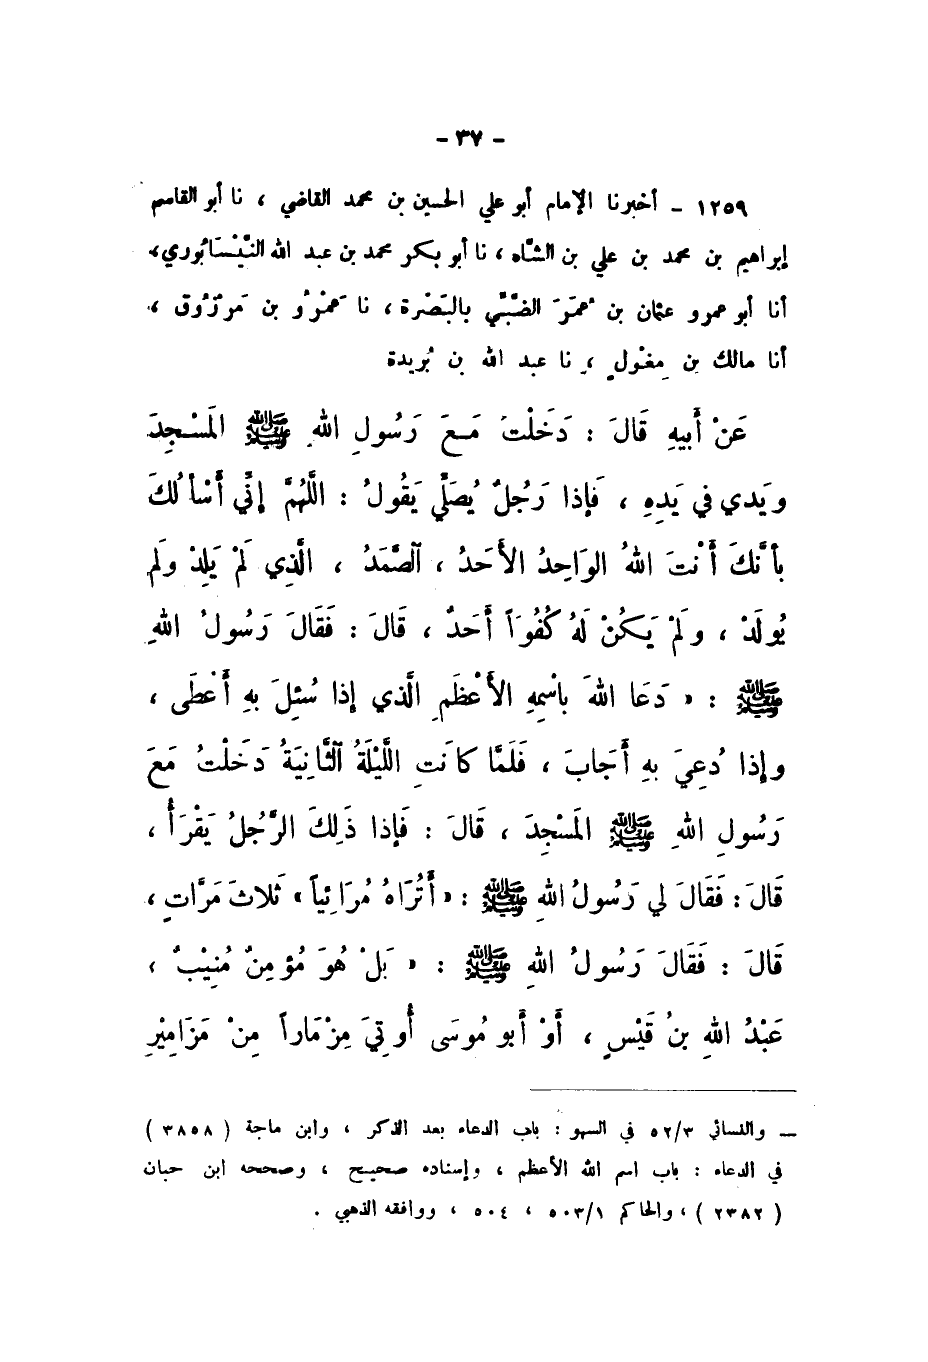 - ٣٧ -
١٢٥٩ - أخبرنا الإمام أبو علي الحسين بن محمد القاضي ، نا أبو القاسم
إبراهيم بن محمد بن علي بن الشَّاه ، نا أبو بكر محمد بن عبد الله النَّيْسَابُوري ،
أنا أبو عمرو عثمان بن عُمَرَ الضَّبِّي بالبَصْرة ، نا عَمْرُو بن مَرْزُوق ،
أنا مالك بن مِغْوَلٍ ، نا عبد الله بن بُريدة
عَنْ أَبيهِ قَالَ : دَخَلْتُ مَعَ رَسُولِ اللهِ ﷺ المَسْجِدَ
ويَدي في يَدِهِ ، فَإذا رَجُلٌ يُصَلِّي يَقُولُ : اللَّهُمَّ إنِّي أَسْأَلُكَ
بأَنَّكَ أَنْتَ اللهُ الوَاحِدُ الأَحَدُ ، الصَّمَدُ ، الَّذِي لَمْ يَلِدْ ولَم
يُولَدْ ، ولَمْ يَكُنْ لَهُ كُفُوَاً أَحَدٌ ، قَالَ : فَقَالَ رَسُولُ اللهِ
ﷺ : « دَعَا اللهَ باسْمِهِ الأَعْظَمِ الَّذي إذا سُئِلَ بهِ أَعْطَى ،
وإذا دُعِيَ بهِ أَجَابَ ، فَلَمَّا كَانَتِ اللَّيْلَةُ الثَّانِيَةُ دَخَلْتُ مَعَ
رَسُولِ اللهِ ﷺ المَسْجِدَ ، قَالَ : فَإذا ذَلِكَ الرَّجُلُ يَقْرَأُ ،
قَالَ : فَقَالَ لي رَسُولُ اللهِ ﷺ : « أَتُرَاهُ مُرَائِياً » ثَلاثَ مَرَّاتٍ ،
قَالَ : فَقَالَ رَسُولُ اللهِ ﷺ : « بَلْ هُوَ مُؤمِنٌ مُنِيْبٌ ،
عَبْدُ اللهِ بنُ قَيْسٍ ، أَوْ أَبو مُوسَى أُوتِيَ مِزْمَاراً مِنْ مَزَامِيْرِ
ــ والنسائي ٥٢/٣ في السهو : باب الدعاء بعد الذكر ، وابن ماجة ( ٣٨٥٨ )
في الدعاء : باب اسم الله الأعظم ، وإسناده صحيح ، وصححه ابن حبان
( ٢٣٨٢ ) ، والحاكم ٥٠٣/١ ، ٥٠٤ ، ووافقه الذهبي .